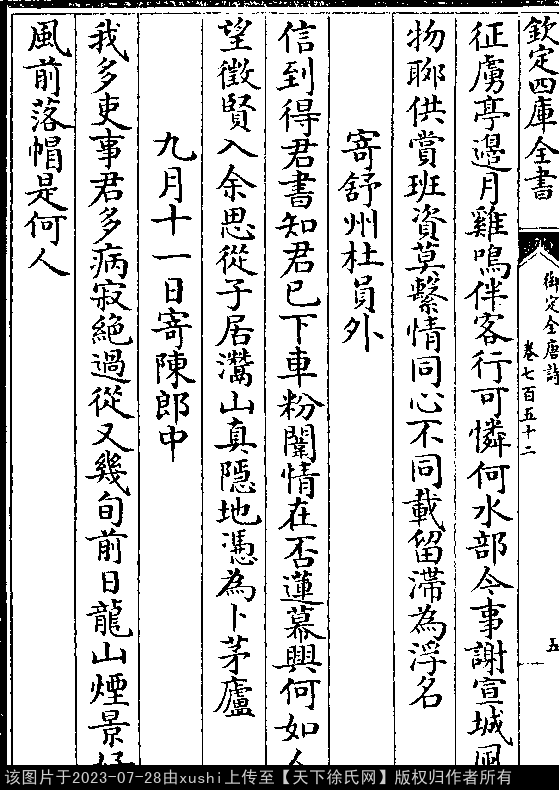 欽定四庫全書
御定全唐詩
卷七百五十二
五
征虜亭邊月雞鳴伴客行可憐何水部今事謝宣城風
物聊供賞班資莫繫情同心不同載留滯為浮名
寄舒州杜員外
信到得君書知君已下車粉闈情在否蓮幕興何如人
望徵賢入余思從子居灊山真隱地憑為卜茅廬
九月十一日寄陳郎中
我多吏事君多病寂絶過從又幾旬前日龍山煙景好
風前落帽是何人
该图片于2023-07-28由xushi上传至【天下徐氏网】版权归作者所有